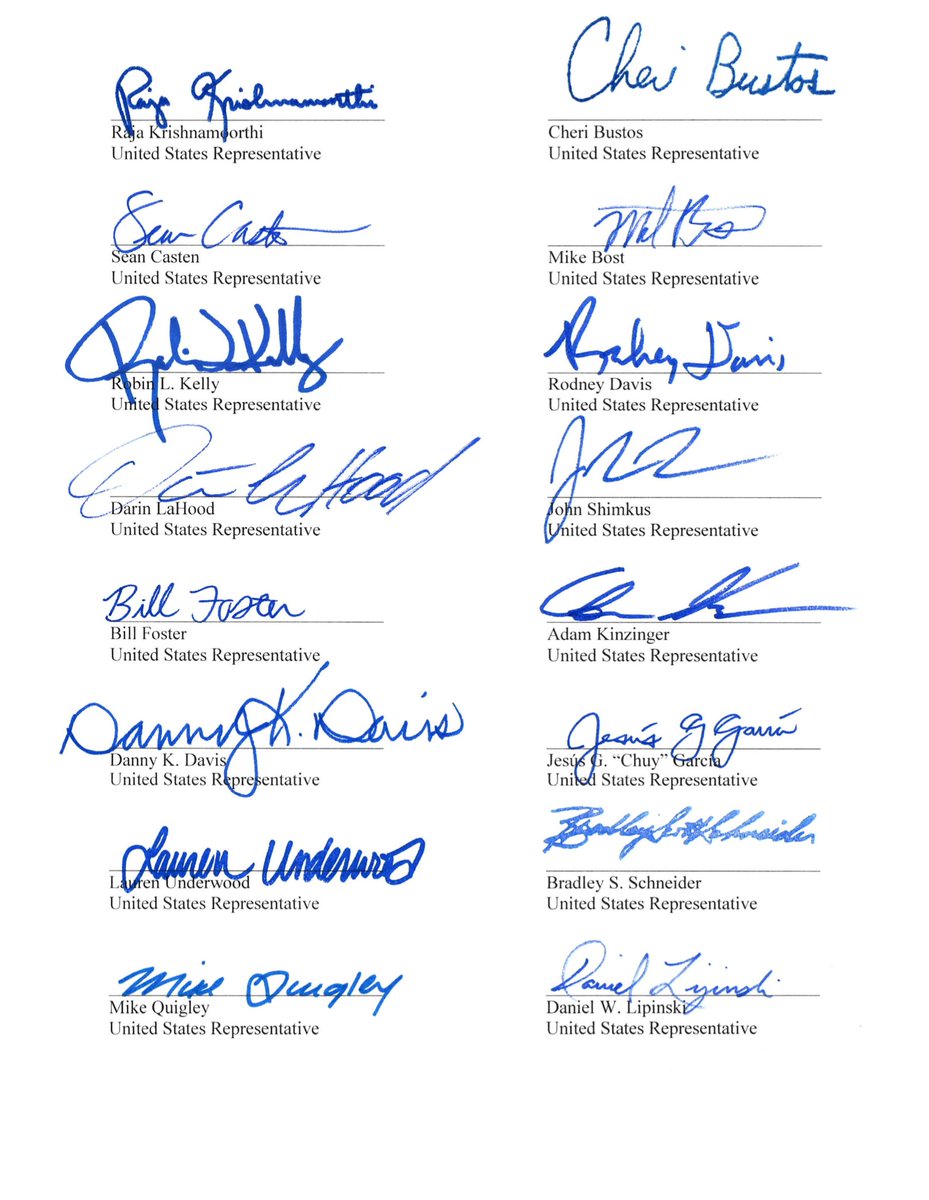 Raja Krishnamoorthi
Raja Krishnamoorthi
United States Representative
Cheri Bustos
Cheri Bustos
United States Representative
Sean Casten
Sean Casten
United States Representative
Mike Bost
Mike Bost
United States Representative
Robin L Kelly
Robin L. Kelly
United States Representative
Rodney Davis
Rodney Davis
United States Representative
Darin LaHood
Darin LaHood
United States Representative
John Shimkus
United States Representative
Bill Foster
Bill Foster
United States Representative
Adam Kinzinger
United States Representative
Danny K. Davis
Danny K. Davis
United States Representative
Jesús G García
Jesús G. “Chuy” García
United States Representative
Lauren Underwood
Lauren Underwood
United States Representative
Bradley Scott Schneider
Bradley S. Schneider
United States Representative
Mike Quigley
Mike Quigley
United States Representative
Daniel Lipinski
Daniel W. Lipinski
United States Representative